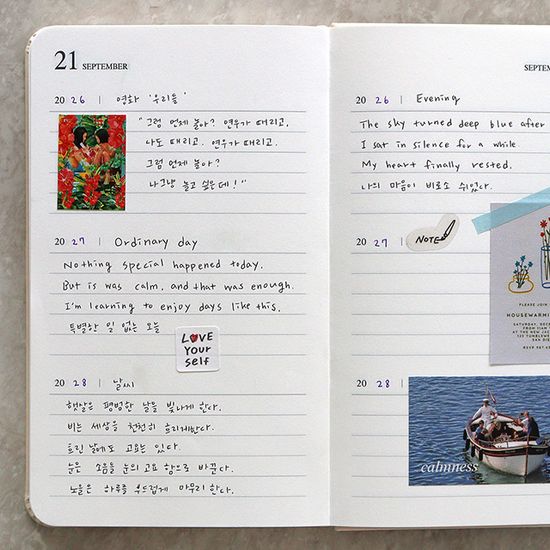 21 SEPTEMBER
20 26 | 영화 '우리들'
"그럼 언제 놀아? 연우가 때리고,
나도 때리고. 연우가 때리고.
그럼 언제 놀아?
나 그냥 놀고 싶은데!"
20 27 | Ordinary day
Nothing special happened today.
But is was calm, and that was enough.
I'm learning to enjoy days like this.
특별한 일 없는 오늘
LOVE
Your
self
20 28 | 날씨
햇살은 평범한 날을 빛나게 한다.
비는 세상을 천천히 흐리게한다.
흐린 날에도 고요는 있다.
눈은 소음을 눈의 고요 함으로 바꾼다.
노을은 하루를 부드럽게 마무리 한다.
SEPTEM
20 26 | Evening
The sky turned deep blue after
I sat in silence for a while
My heart finally rested.
나의 마음이 비로소 쉬었다.
20 27 |
NOTE
PLEASE JOIN
HOUSEWARMIN
SATURDAY, DECE
FROM
AT THE NEW
525 TUMBLEWE
SAN DI
RSVP
20 28 |
calmness